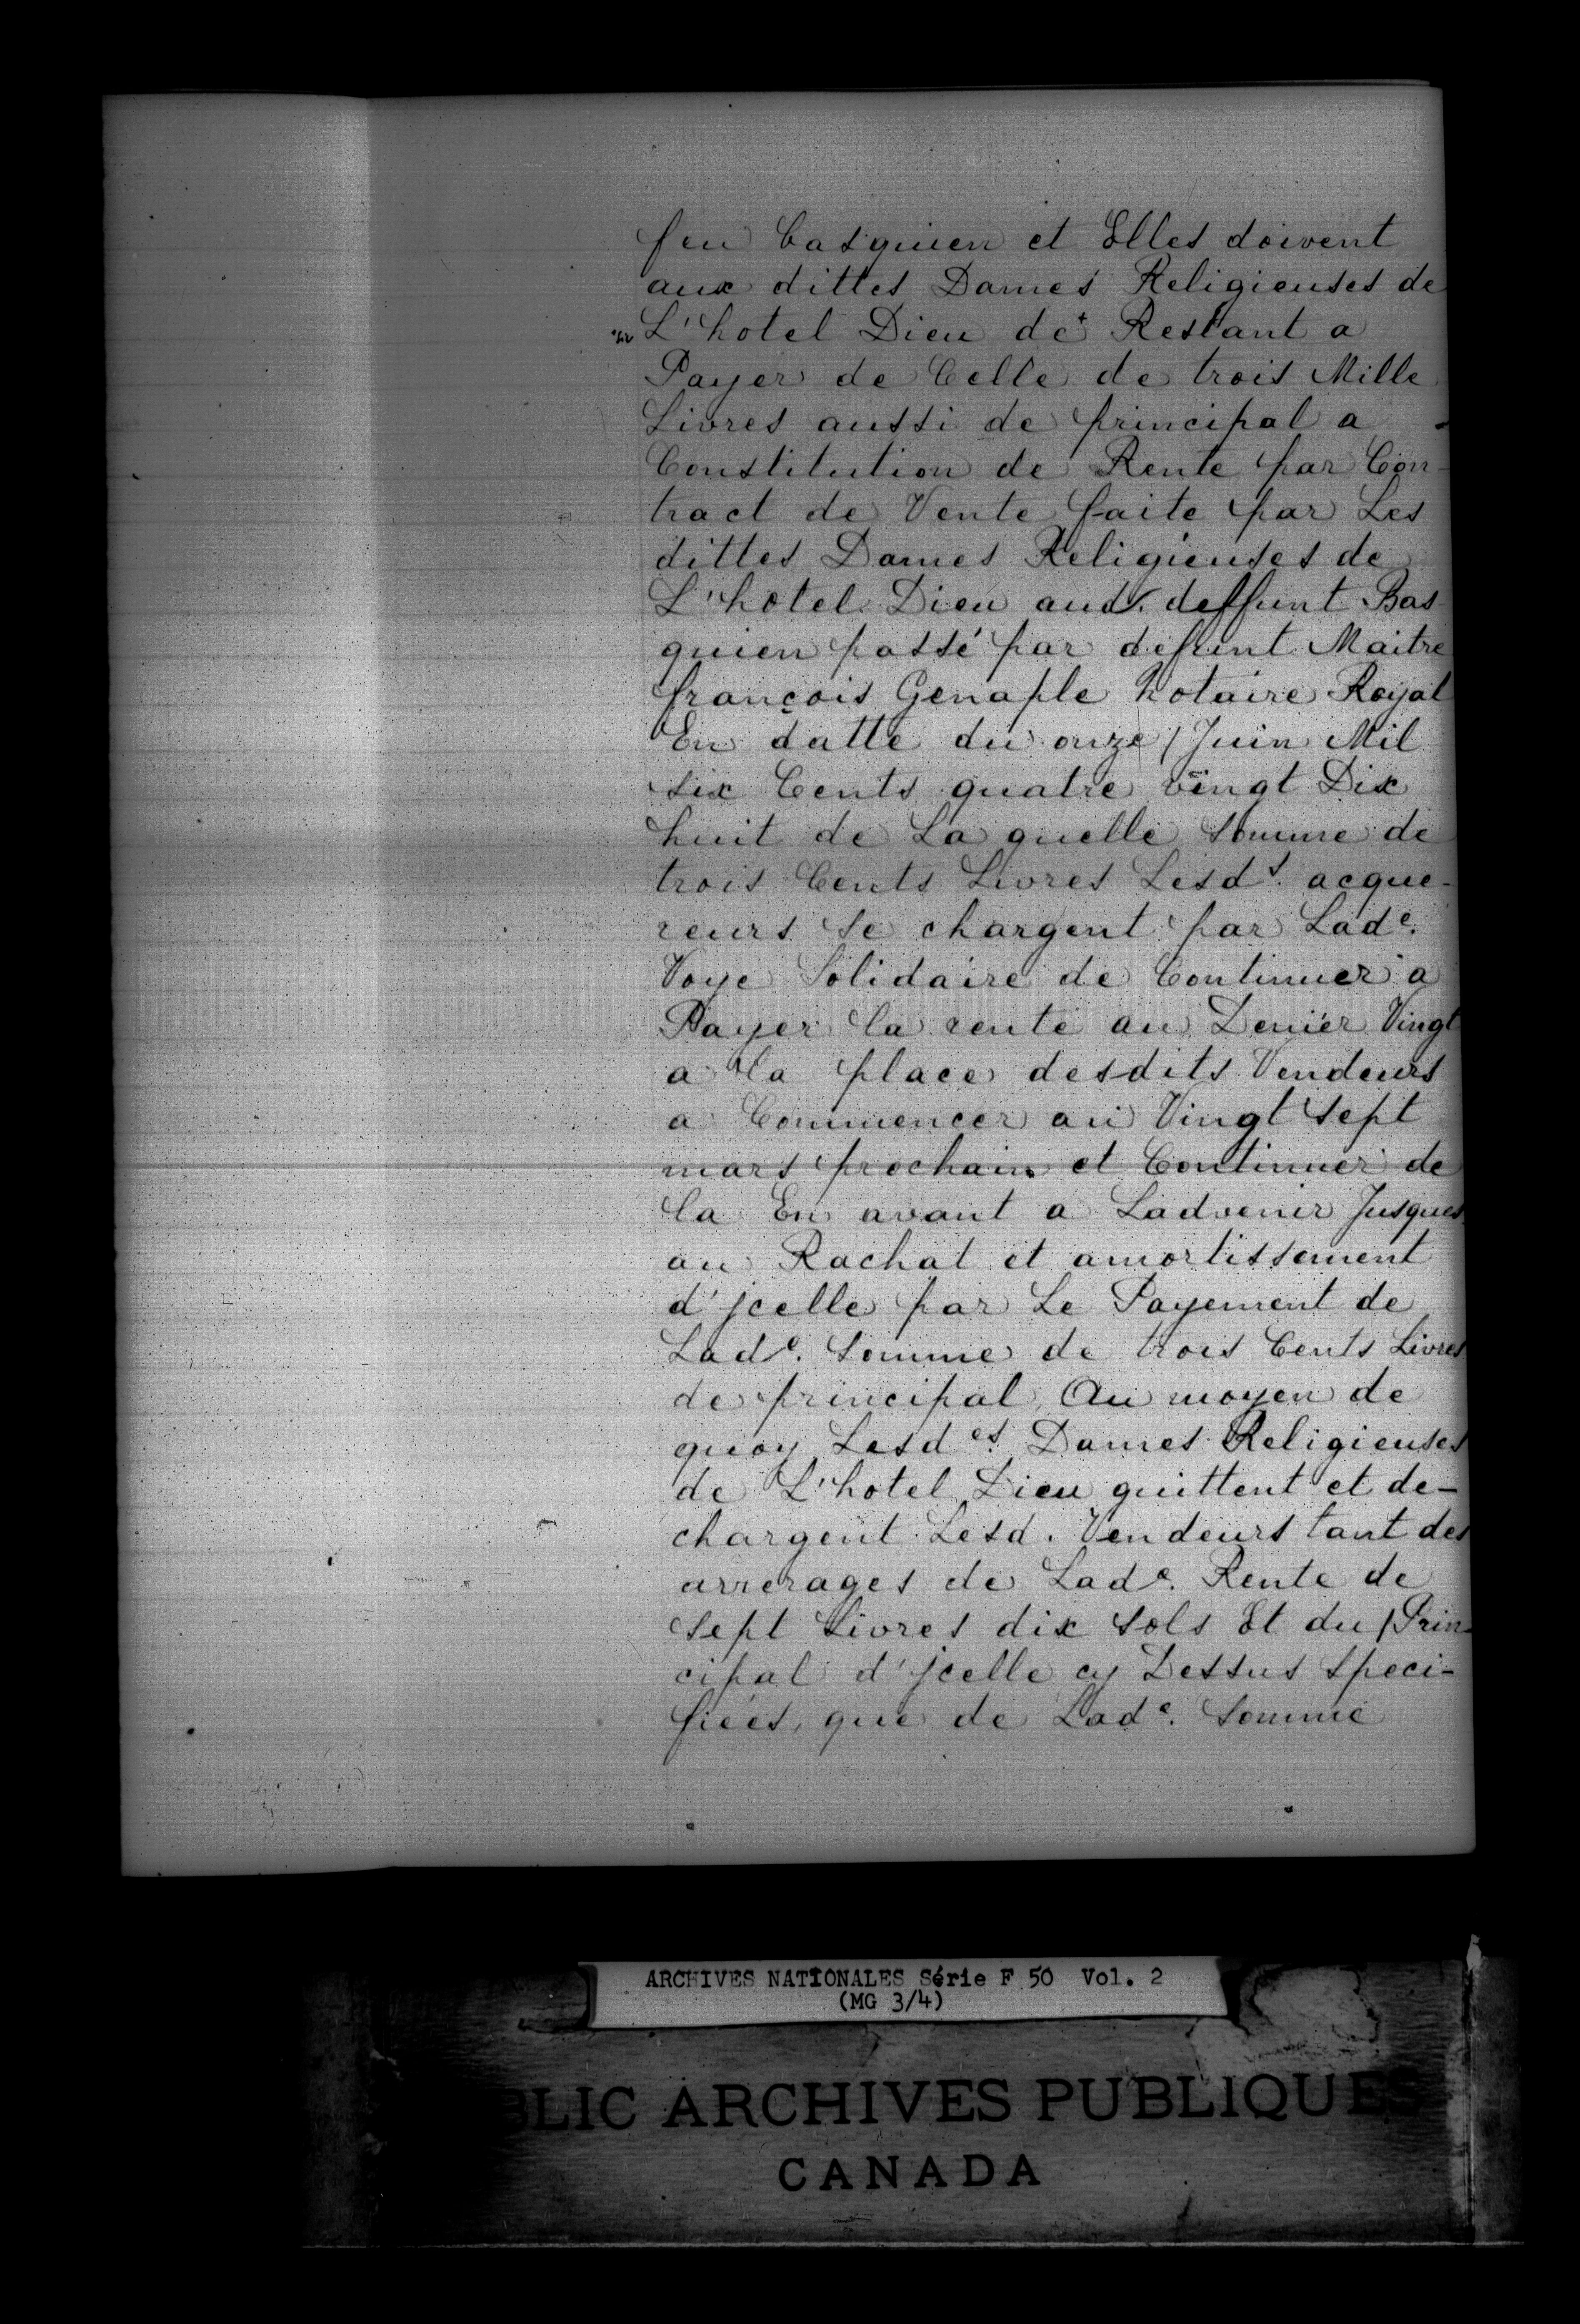 feu Casquien et Elles doivent
aux dittes Dames Religieuses de
L'hotel Dieu de+ Restant a
Payer de Celle de trois Mille
Livres aussi de principal a
Constitution de Rente par Con-
tract de Vente faite par Les
dittes Dames Religieuses de
L'hotel Dieu aud. deffunt Bas-
quien passé par defunt Maitre
françois Genaple Notaire Royal
En datte du onze Juin Mil
six Cents quatre vingt Dix
huit de La quelle somme de
trois Cents Livres Lesds. acque-
reurs se chargent par Lade.
Voye Solidaire de Continuer a
Payer la rente au Denier Vingt
a la place desdits Vendeurs
a Commencer au Vingt sept
mars prochain et Continuer de
la En avant a Ladvenir Jusques
au Rachat et amortissement
d'jcelle par Le Payement de
Lade. somme de trois Cents Livres
de principal, Au moyen de
quoy Lesdes. Dames Religieuses
de L'hotel Dieu quittent et de-
chargent Lesd. Vendeurs tant des
arrerages de Lade. Rente de
sept Livres dix sols Et du Prin-
cipal d'jcelle cy Dessus speci-
fiées, que de Lade. somme
ARCHIVES NATIONALES Série F 50 Vol. 2
(MG 3/4)
BLIC ARCHIVES PUBLIQUES
CANADA